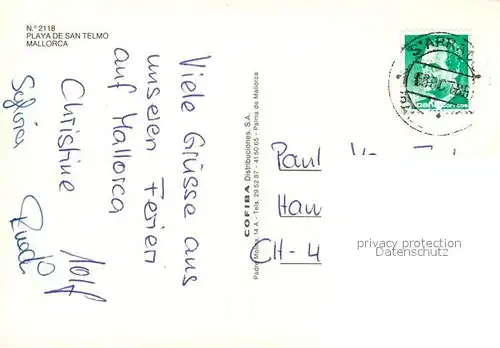 N.º 2118
PLAYA DE SAN TELMO
MALLORCA
Viele Grüsse aus
unseren Ferien
auf Mallorca
Christine Rolf
Ruedi
COFIBA Distribuciones, S.A.
Padre Molina, 14 A - Tels. 29 52 87 - 41 50 65 - Palma de Mallorca
Paul
Hau
CH-4
privacy protection
Datenschutz